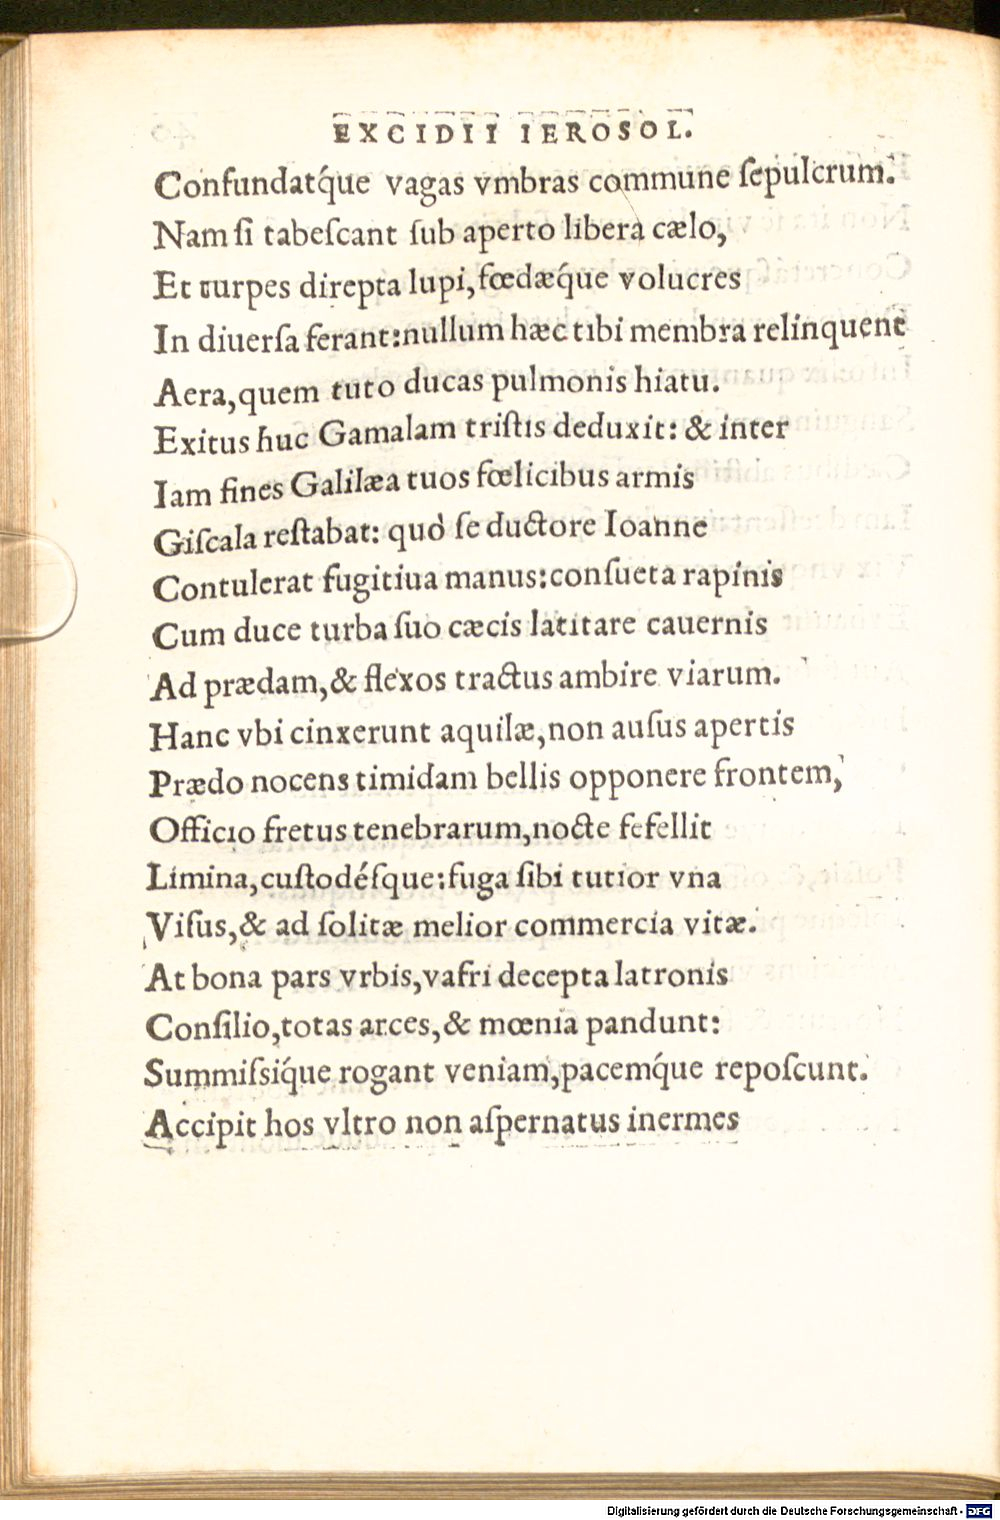 EXCIDII IEROSOL.
Confundatq́ue vagas vmbras commune ſepulcrum.
Nam ſi tabeſcant ſub aperto libera cælo,
Et turpes direpta lupi, fœdæq́ue volucres
In diuerſa ferant: nullum hæc tibi membra relinquent
Aera, quem tuto ducas pulmonis hiatu.
Exitus huc Gamalam triſtis deduxit: & inter
Iam fines Galilæa tuos fœlicibus armis
Giſcala reſtabat: quò ſe ductore Ioanne
Contulerat fugitiua manus: conſueta rapinis
Cum duce turba ſuo cæcis latitare cauernis
Ad prædam, & flexos tractus ambire viarum.
Hanc vbi cinxerunt aquilæ, non auſus apertis
Prædo nocens timidam bellis opponere frontem,
Officio fretus tenebrarum, nocte fefellit
Limina, cuſtodéſque: fuga ſibi tutior vna
Viſus, & ad ſolitæ melior commercia vitæ.
At bona pars vrbis, vafri decepta latronis
Conſilio, totas arces, & mœnia pandunt:
Summiſsiq́ue rogant veniam, pacemq́ue repoſcunt.
Accipit hos vltro non aſpernatus inermes
Digitalisierung gefördert durch die Deutsche Forschungsgemeinschaft - DFG